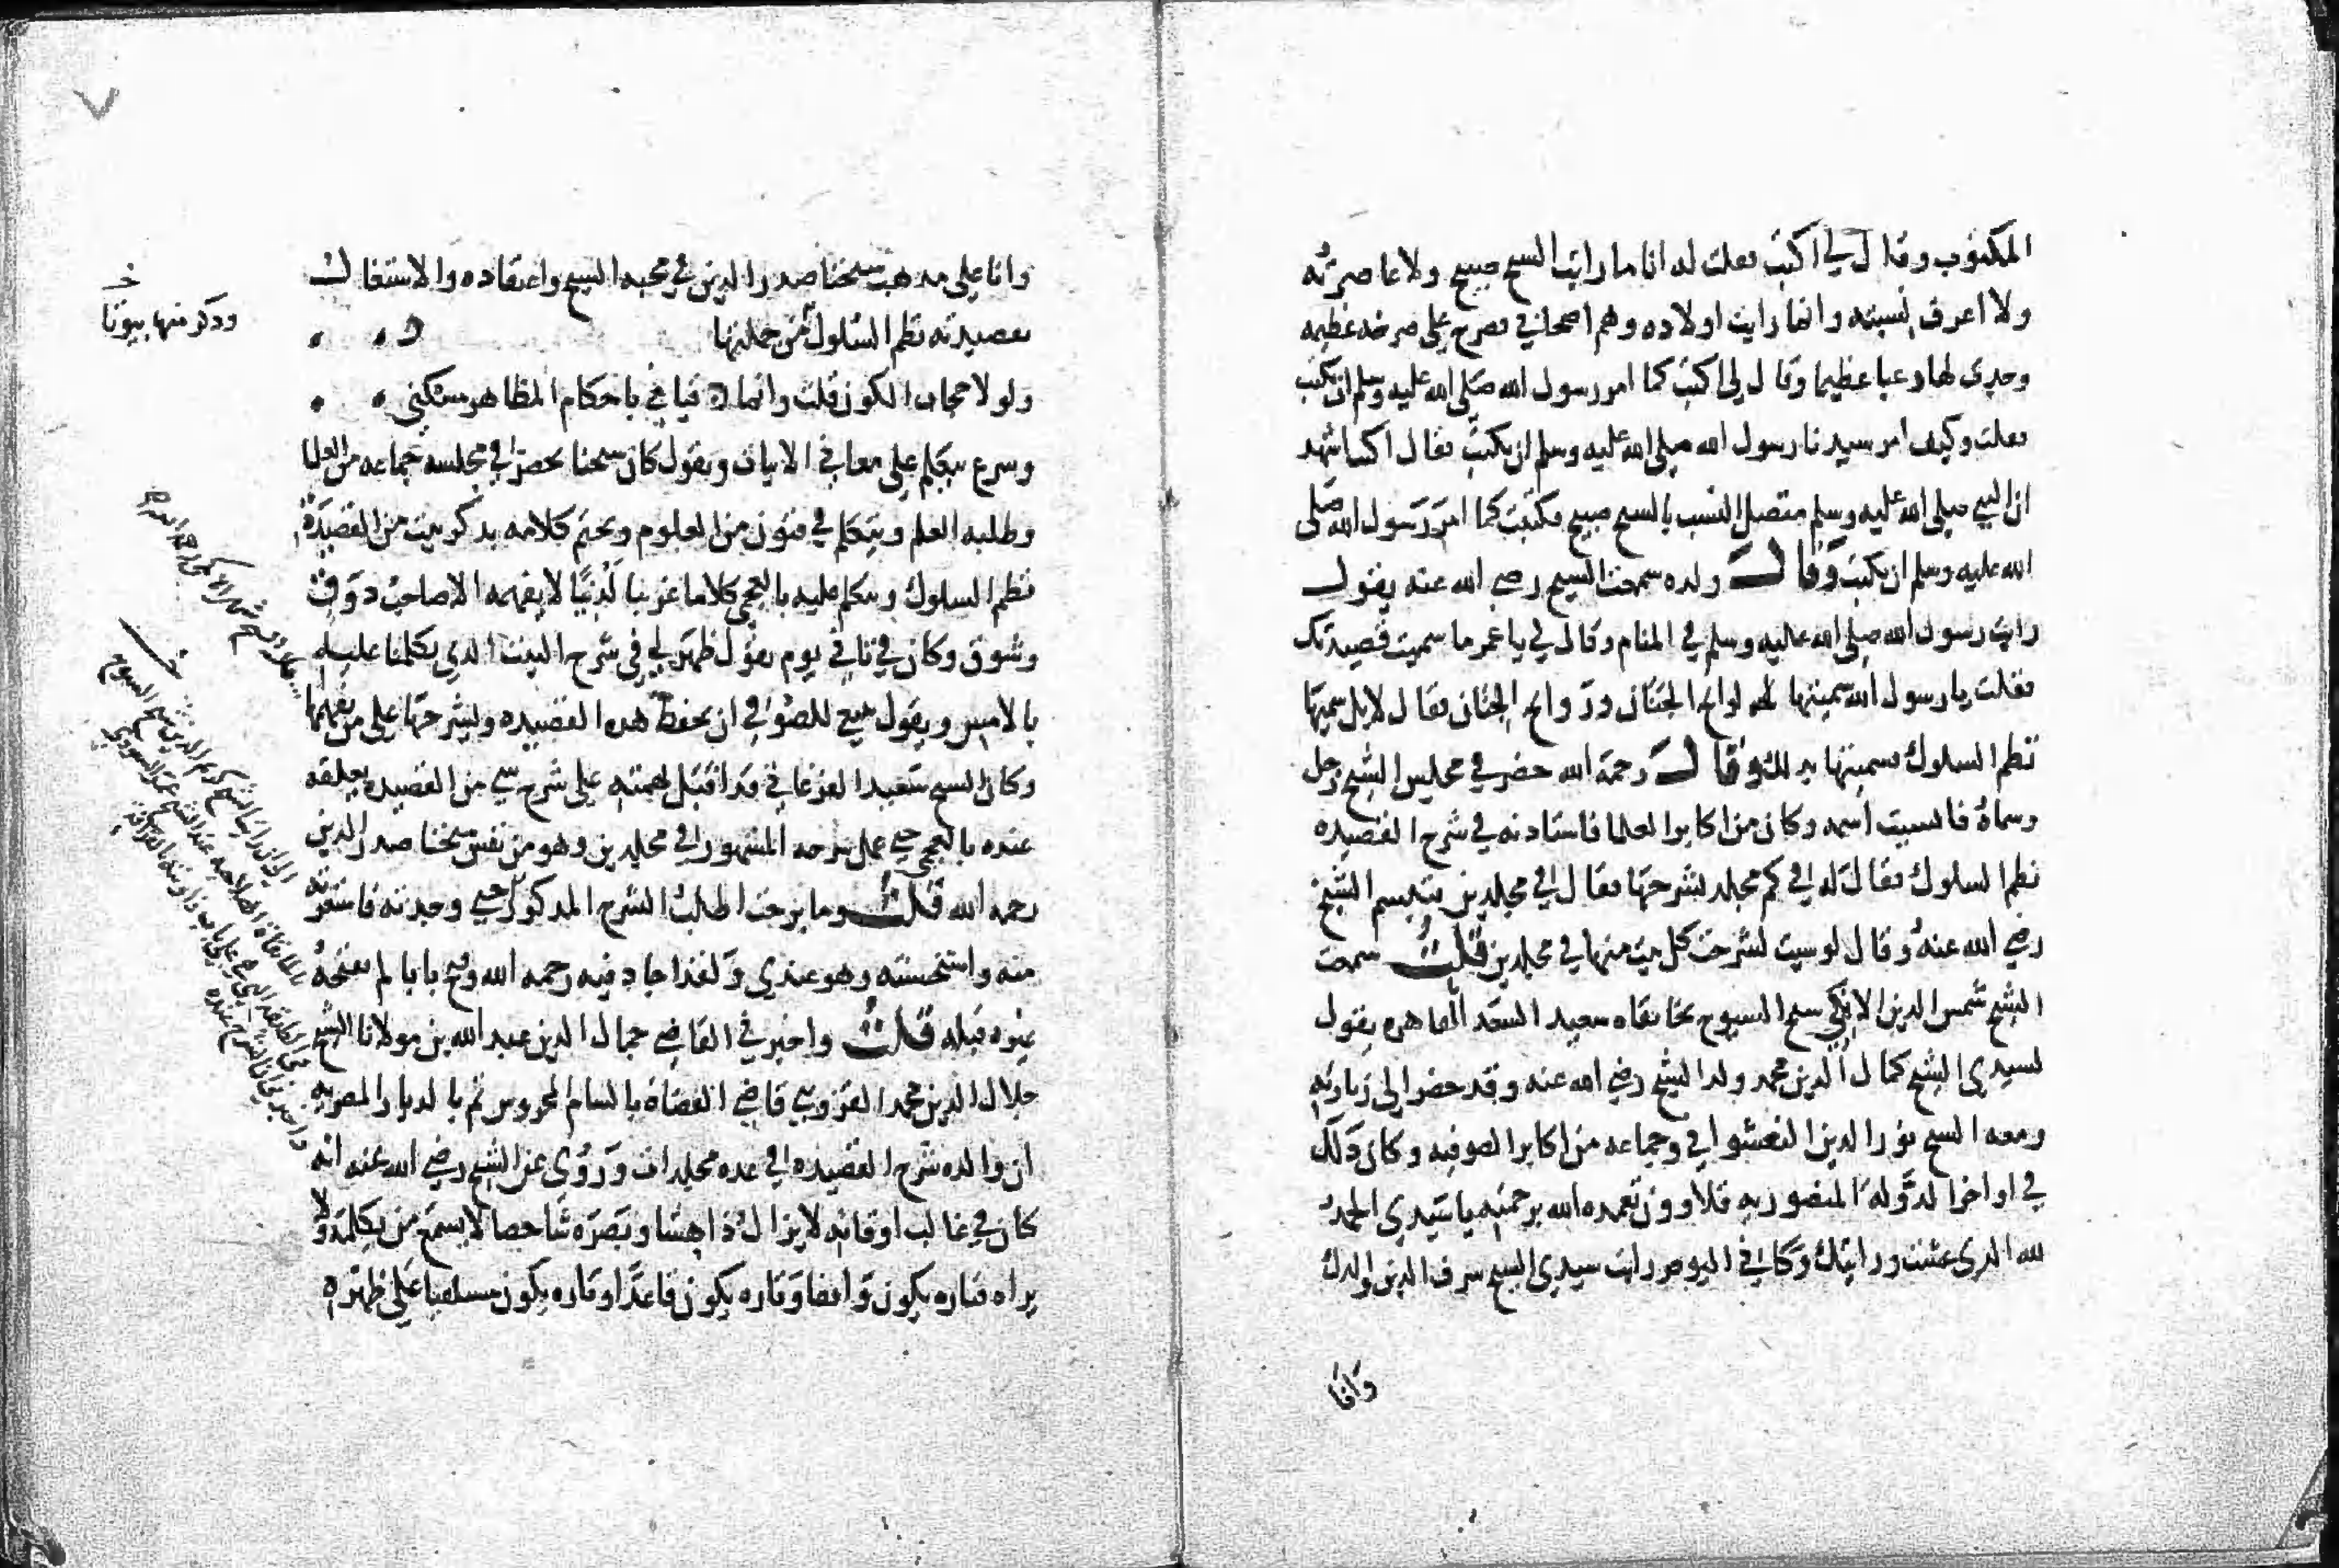 المكتوب وقال لي اكتب فقلت له انا ما رايت الشيخ صبيح ولا عاصرته
ولا اعرف نسبته وانما رايت اولاده وهم اصحابي فصرخ علي صرخه عظيمه
وجدي لها رعبا عظيما وقال لي اكتب كما امر رسول الله صلى الله عليه وسلم ان تكتب
فقلت وكيف امر سيدنا رسول الله صلى الله عليه وسلم ان يكتب فقال اكتب اشهد
ان النبي صلى الله عليه وسلم متصل النسب بالشيخ صبيح فكتبت كما امر رسول الله صلى
الله عليه وسلم ان يكتب وقال ولده سمعت الشيخ رضي الله عنه يقول
رايت رسول الله صلى الله عليه وسلم في المنام وقال لي يا عمر ما سميت قصيدتك
فقلت يا رسول الله سميتها لوائح الجنان وروائح الجنان فقال لا بل سمها
نظم السلوك فسميتها بذلك وقال رحمه الله حضر في مجلس الشيخ رجل
وسماه فانسيت اسمه وكان من اكابر العلما فاستاذنه في شرح القصيده
نظم السلوك فقال له في كم مجلد تشرحها فقال في مجلدين فتبسم الشيخ
رضي الله عنه وقال لو شيت لشرحت كل بيت منها في مجلدين قلت سمعت
الشيخ شمس الدين الايكي شيخ الشيوخ بخانقاه سعيد السعدا بالقاهره يقول
لسيدي الشيخ كمال الدين محمد ولد الشيخ رضي الله عنه وقد حضر الى زيارته
ومعه الشيخ نور الدين النقشواني وجماعه من اكابر الصوفيه وكان ذلك
في اواخر الدوله المنصوريه قلاوون تغمده الله برحمته يا سيدي الحمد
لله الذي عشت ورايتك وكاني اليوم رايت سيدي الشيخ شرف الدين والدك
وانا
وانا على مذهب شيخنا صدر الدين في محبه الشيخ واعتقاده والاشتغال
بقصيدته نظم السلوك فمن جملتها
وذكر منها بيوتا
ولولا حجاب الكون قلت وانما قيامي باحكام المظاهر مسكتي
وشرع يتكلم على معاني الابيات ويقول كان شيخنا يحضر في مجلسه جماعه من العلما
وطلبه العلم ويتكلم في فنون من العلوم ويختم كلامه بذكر بيت من القصيدة
نظم السلوك ويتكلم عليه بالعجمي كلاما غريبا لدنيا لا يفهمه الا صاحب ذوق
وشوق وكان في ثاني يوم يقول ظهر لي في شرح البيت الذي تكلمنا عليه
بالامس ويقول ينبغي للصوفي ان يحفظ هذه القصيده ويشرحها على من يفهمها
وكان الشيخ سعيد الفرغاني قد اقبل بهمته على شرح شي من القصيده يعلقه
عنده بالعجمي حتى عمل شرحه المشهور في مجلدين وهو من نفس شيخنا صدر الدين
رحمه الله قلت وما برحت اطلب الشرح المذكور حتى وجدته فاشتريته
منه واستحسنته وهو عندي ولقد اجاد فيه رحمه الله وفتح بابا لم يفتحه
غيره قبله قلت واخبرني القاضي جمال الدين عبد الله بن مولانا الشيخ
جلال الدين محمد القزويني قاضي القضاة بالشام المحروس ثم بالديار المصريه
ان والده شرح القصيده في عده مجلدات وروي عن الشيخ رضي الله عنه انه
كان في غالب اوقاته لا يزال داهشا وبصره شاخصا لا يسمع من يكلمه ولا
يراه فتاره يكون واقفا وتاره يكون قاعدا وتاره يكون مستلقيا على ظهره